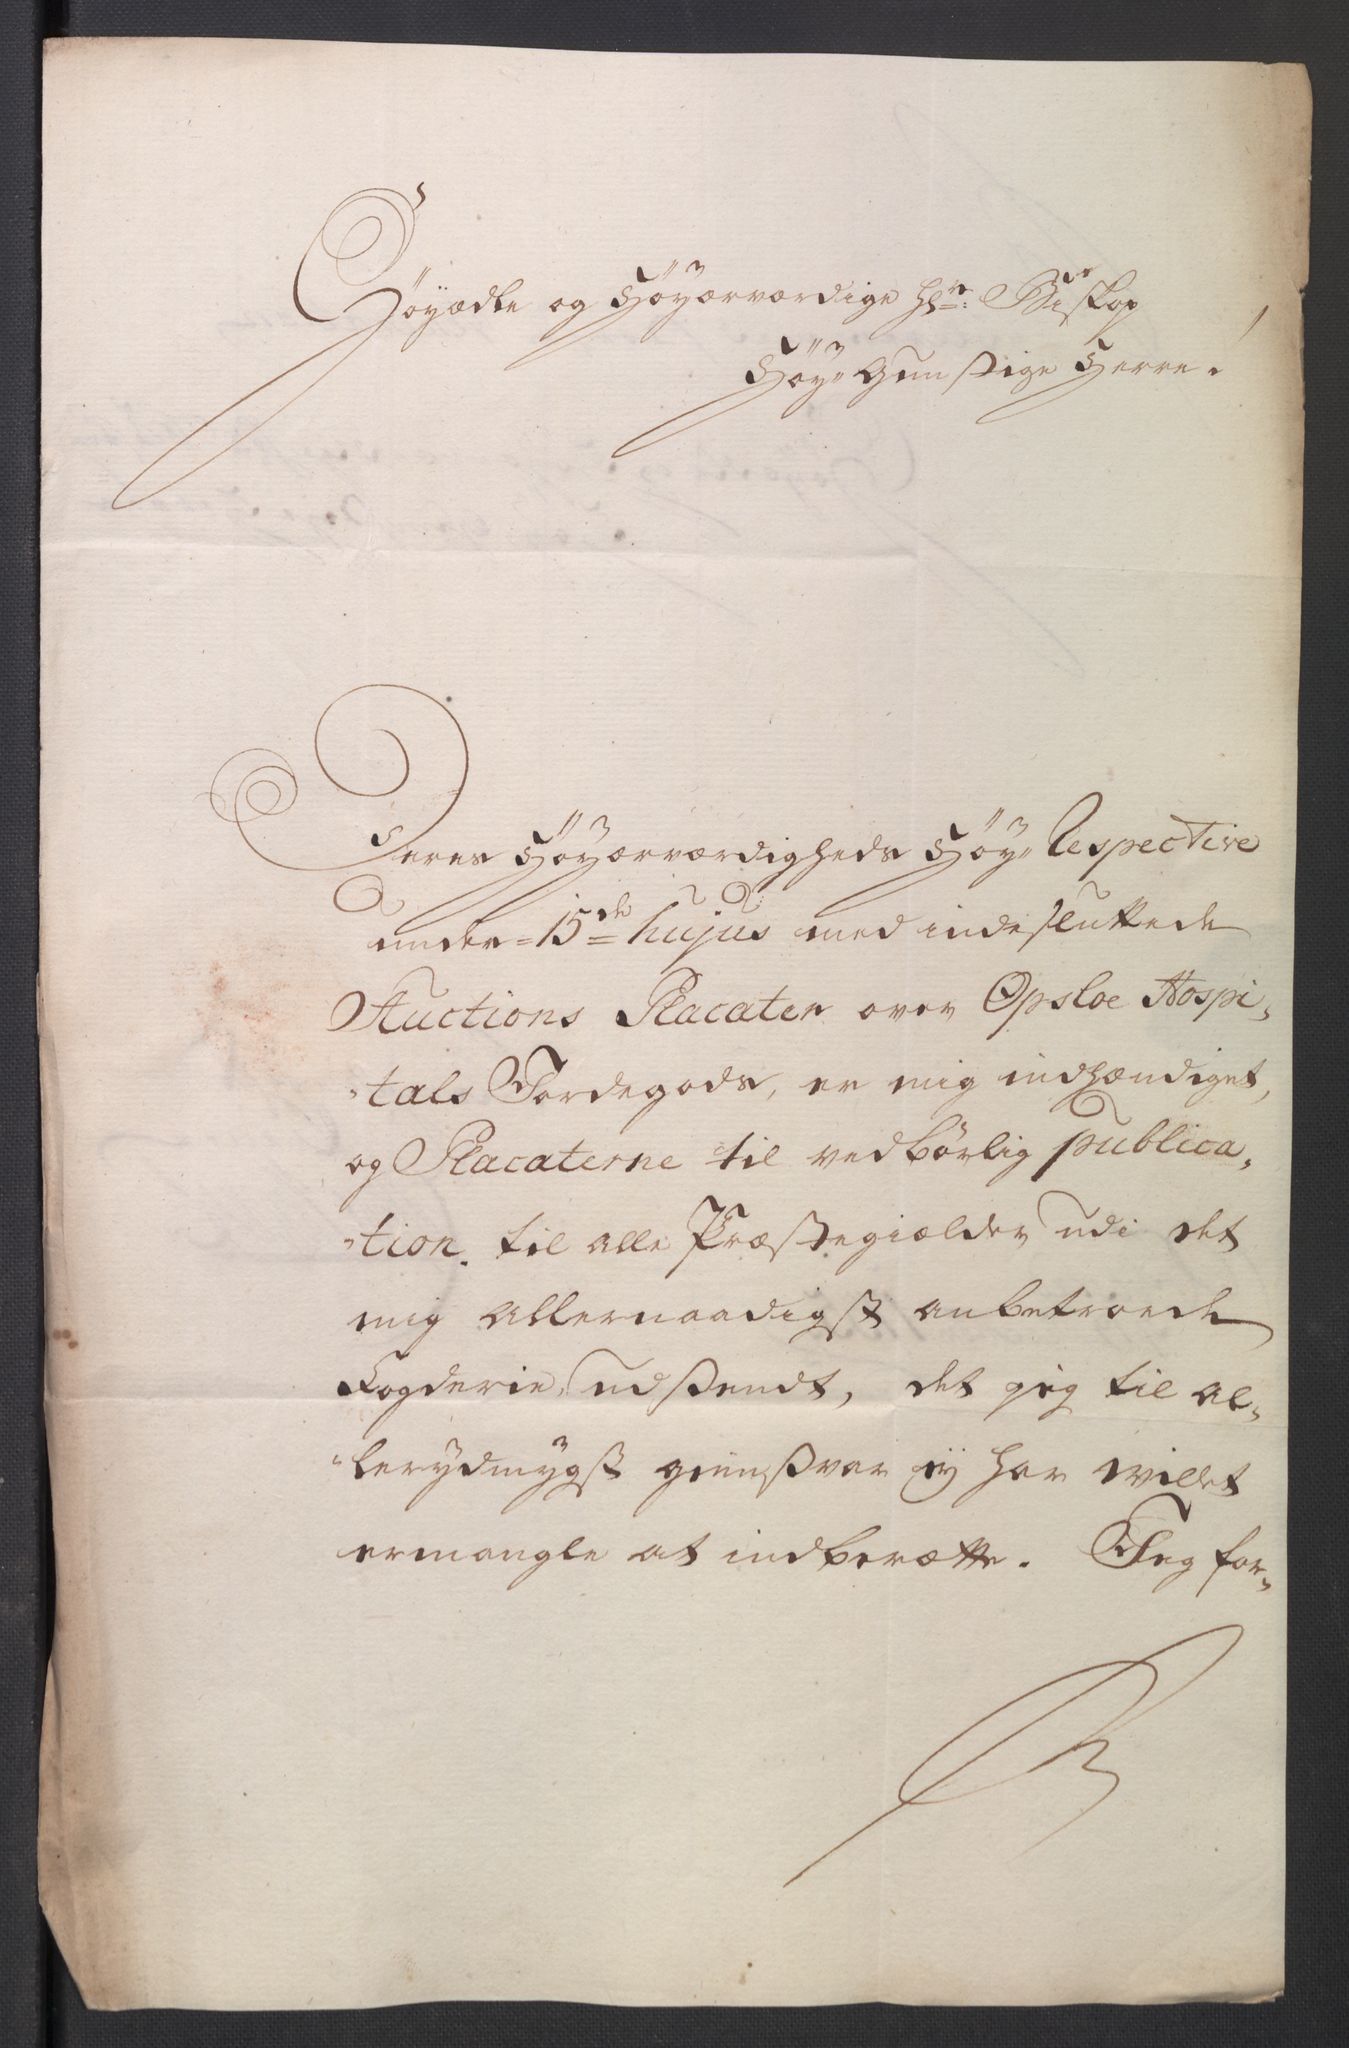 Höyædle og Höyærværdige Hr: Biskop
Höy-Gunstige Herre!
Deres Höyærværdigheds Höy-Respective
under 15de hujus med indesluttede
Auctions Placater over Opsloe Hospi-
tals Jordegods, er mig indhændiget,
og Placaterne til vedbörlig publica-
tion. til alle Præstegiælder udi det
mig allernaadigst anbetroede
Fogderie, udsendt, det jeg til al-
lerydmygst giensvar ey har willet
ermangle at indberætte. Jeg for-